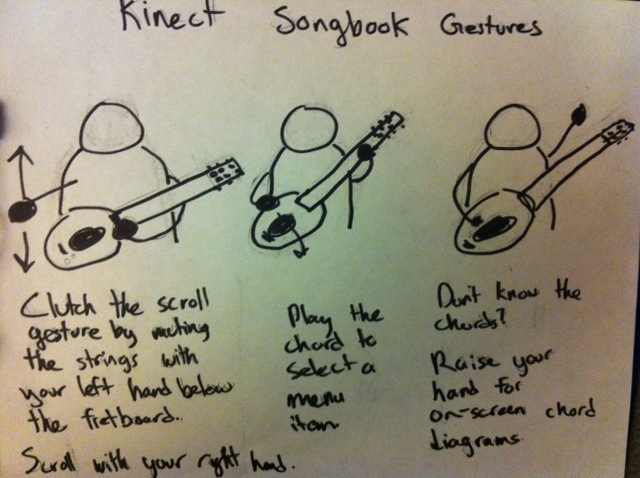 Kinect Songbook Gestures
Clutch the scroll
gesture by muting
the strings with
your left hand below
the fretboard.
Scroll with your right hand.
Play the
chord to
select a
menu
item
Don't know the
chords?
Raise your
hand for
on-screen chord
diagrams